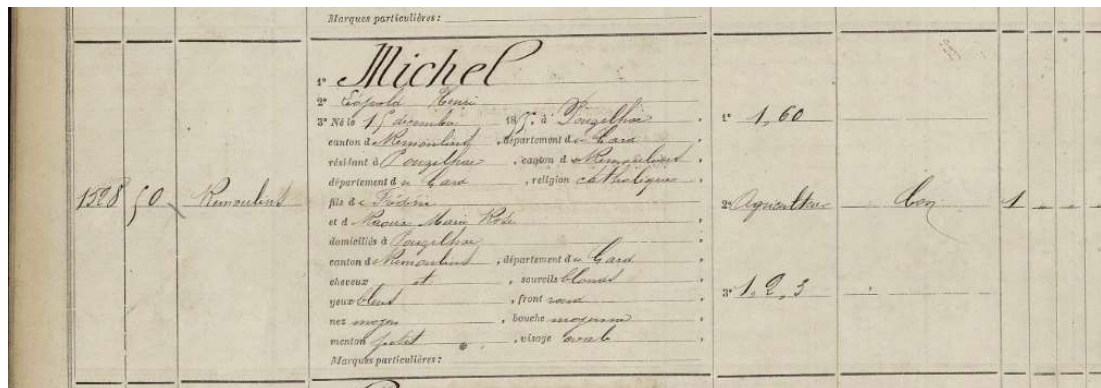 Marques particulières :
1° Michel
2° Léopold Henri
3° Né le 15 décembre 18 , à Pouzilhac
canton de Remoulins, département du Gard
résidant à Pouzilhac, canton de Remoulins,
département du Gard, religion catholique,
fils de Frédéric
et de Marie Rose
domiciliés à Pouzilhac
canton de Remoulins, département du Gard
cheveux et, sourcils blonds
yeux bleus, front rond
nez moyen, bouche moyenne
menton, visage ovale
Marques particulières :
1528 50 Remoulins
1° 1,60
2° Agriculteur bon 1
3° 1, 2, 3